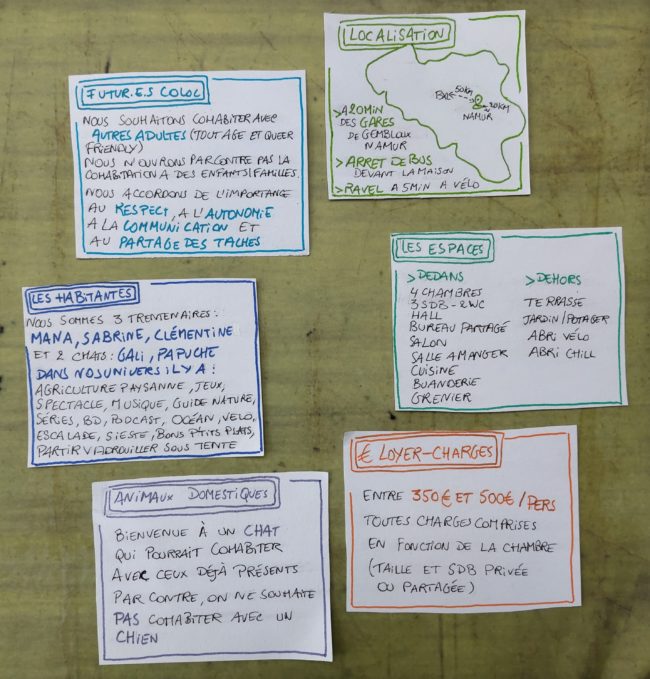 FUTUR.E.S COLOC
NOUS SOUHAITONS COHABITER AVEC
AUTRES ADULTES (TOUT AGE ET QUEER
FRIENDLY)
NOUS N'OUVRONS PAR CONTRE PAS LA
COHABITATION A DES ENFANTS/FAMILLES.
NOUS ACCORDONS DE L'IMPORTANCE
AU RESPECT, A L'AUTONOMIE
A LA COMMUNICATION ET
AU PARTAGE DES TACHES
LOCALISATION
BXL
50KM
20KM
NAMUR
> A 20MIN
DES GARES
DE GEMBLOUX
NAMUR
> ARRET DE BUS
DEVANT LA MAISON
> RAVEL A 5MIN A VÉLO
LES HABITANTES
NOUS SOMMES 3 TRENTENAIRES :
MANA, SABRINE, CLÉMENTINE
ET 2 CHATS : GALI, PAPUCHE
DANS NOS UNIVERS IL Y A :
AGRICULTURE PAYSANNE, JEUX,
SPECTACLE, MUSIQUE, GUIDE NATURE,
SÉRIES, BD, PODCAST, OCÉAN, VELO,
ESCALADE, SIESTE, BONS P'TITS PLATS,
PARTIR VADROUILLER SOUS TENTE
LES ESPACES
> DEDANS
4 CHAMBRES
3 SDB - 2 WC
HALL
BUREAU PARTAGÉ
SALON
SALLE A MANGER
CUISINE
BUANDERIE
GRENIER
> DEHORS
TERRASSE
JARDIN/POTAGER
ABRI VÉLO
ABRI CHILL
ANIMAUX DOMESTIQUES
BIENVENUE À UN CHAT
QUI POURRAIT COHABITER
AVEC CEUX DÉJÀ PRÉSENTS
PAR CONTRE, ON NE SOUHAITE
PAS COHABITER AVEC UN
CHIEN
€ LOYER-CHARGES
ENTRE 350€ ET 500€/PERS
TOUTES CHARGES COMPRISES
EN FONCTION DE LA CHAMBRE
(TAILLE ET SDB PRIVÉE
OU PARTAGÉE)